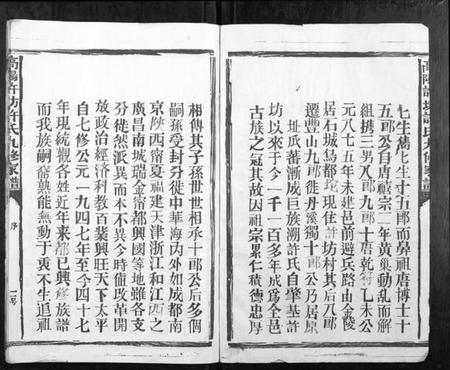 七生儁七生十五郎而鼻祖唐博士十
五郎公自唐禧宗二年黃巢動乱而解
組携三男八郎九郎十唐乾符乙未公
元八七五年未建邑前避兵路由金陵
居石城島都坨現住許坊村其后八郎
遷豐山九郎徙丹溪獨十郎公乃居原
址瓜蕃漸成巨族溯許氏自肇基許
坊以來于今一千一百多年成為全邑
古族之冠其故因祖宗累仁積德忠厚
相傳其子孫世世相承十郎公后多個
嗣孫受封分徙中華海內外如成都南
京陝西甯夏福建天津浙江和江西之
廣昌南城瑞金甯都興國等地雖各支
分徙然派異而本不異今時值改革開
放政治經济利教百業興旺天下太平
自七修公元一九四七年至今四十七
年現統觀各姓近年來都已興修族譜
而我族嗣裔孰能無動于衷不生追祖
高陽許坊許氏九修家譜
序